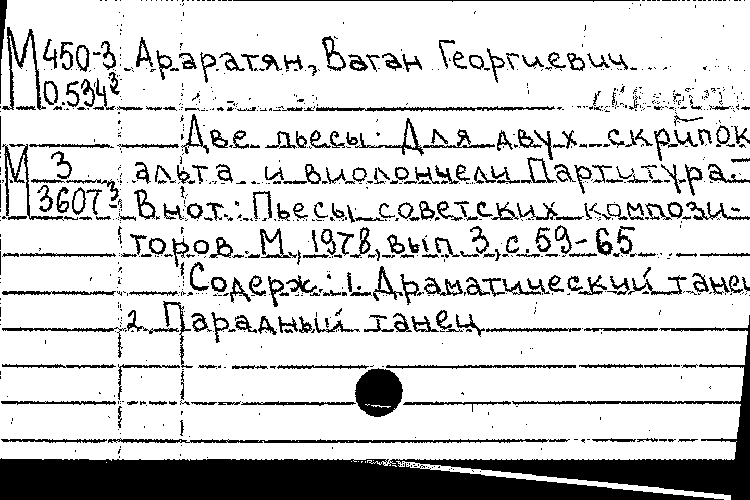 М 450-3 Араратян, Ваган Георгиевич
0.534³
Две пьесы: Для двух скрипок
М 3 альта и виолончели Партитура.-
3607³ В нот.: Пьесы советских компози-
торов М., 1978, вып. 3, с. 59-65
Содерж.: 1. Драматический танец
2. Парадный танец